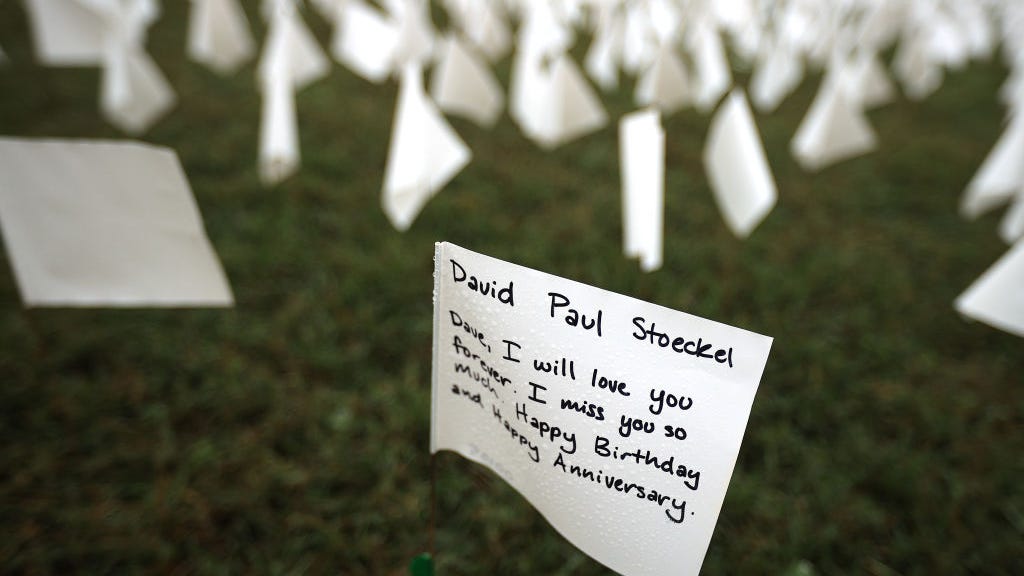 David Paul Stoeckel
Dave, I will love you
forever. I miss you so
much. Happy Birthday
and Happy Anniversary.